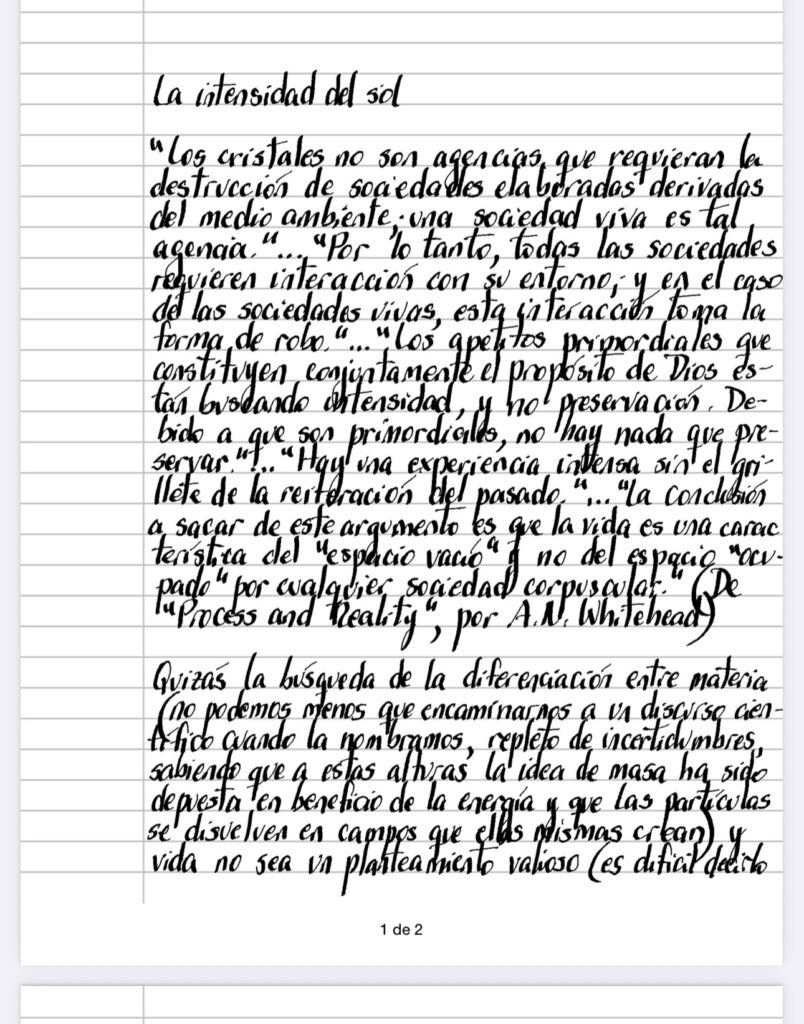 La intensidad del sol
"Los cristales no son agencias que requieran la
destrucción de sociedades elaboradas derivadas
del medio ambiente; una sociedad viva es tal
agencia."..."Por lo tanto, todas las sociedades
requieren interacción con su entorno; y en el caso
de las sociedades vivas, esta interacción toma la
forma de robo."..."Los apetitos primordiales que
constituyen conjuntamente el propósito de Dios es-
tán buscando intensidad, y no preservación. De-
bido a que son primordiales, no hay nada que pre-
servar."..."Hay una experiencia intensa sin el gri-
llete de la reiteración del pasado."..."La conclusión
a sacar de este argumento es que la vida es una carac
terística del "espacio vació" y no del espacio "ocu-
pado" por cualquier sociedad corpuscular." (De
"Process and Reality", por A.N. Whitehead)
Quizás la búsqueda de la diferenciación entre materia
(no podemos menos que encaminarnos a un discurso cien-
tífico cuando la nombramos, repleto de incertidumbres,
sabiendo que a estas alturas la idea de masa ha sido
depuesta en beneficio de la energía y que las partículas
se disuelven en campos que ellas mismas crean) y
vida no sea un planteamiento valioso (es difícil decirlo
1 de 2